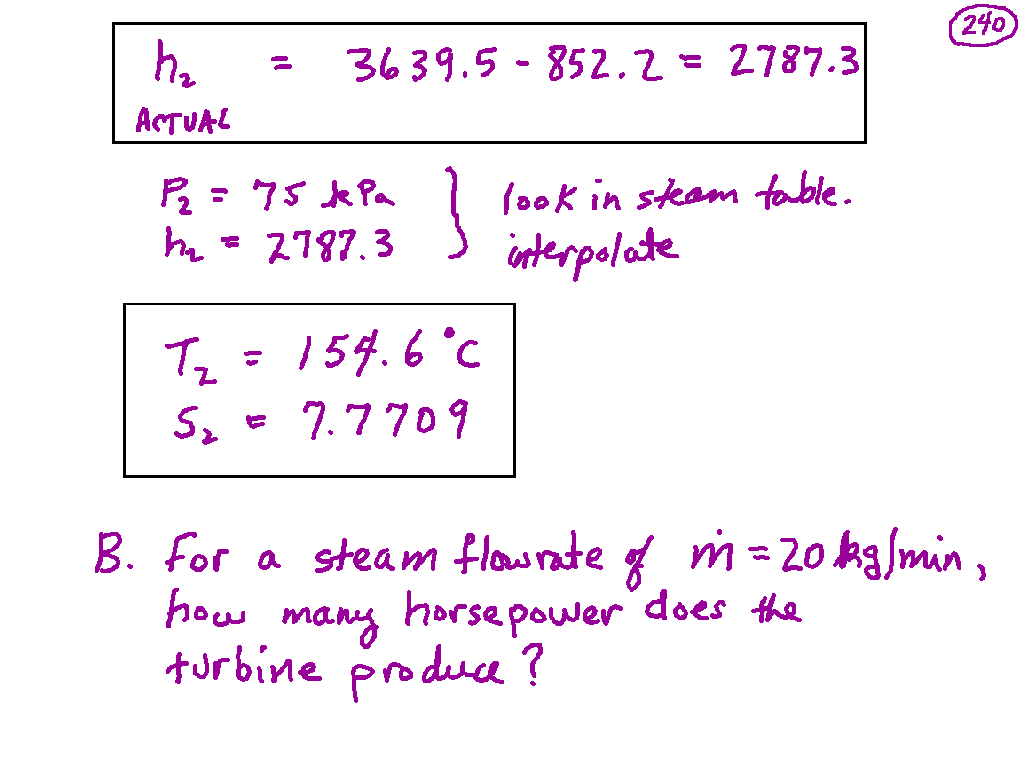 240
h₂ = 3639.5 - 852.2 = 2787.3
ACTUAL
P₂ = 75 kPa } look in steam table.
h₂ = 2787.3 } interpolate
T₂ = 154.6 °C
S₂ = 7.7709
B. For a steam flowrate of ṁ = 20 kg/min,
how many horsepower does the
turbine produce?